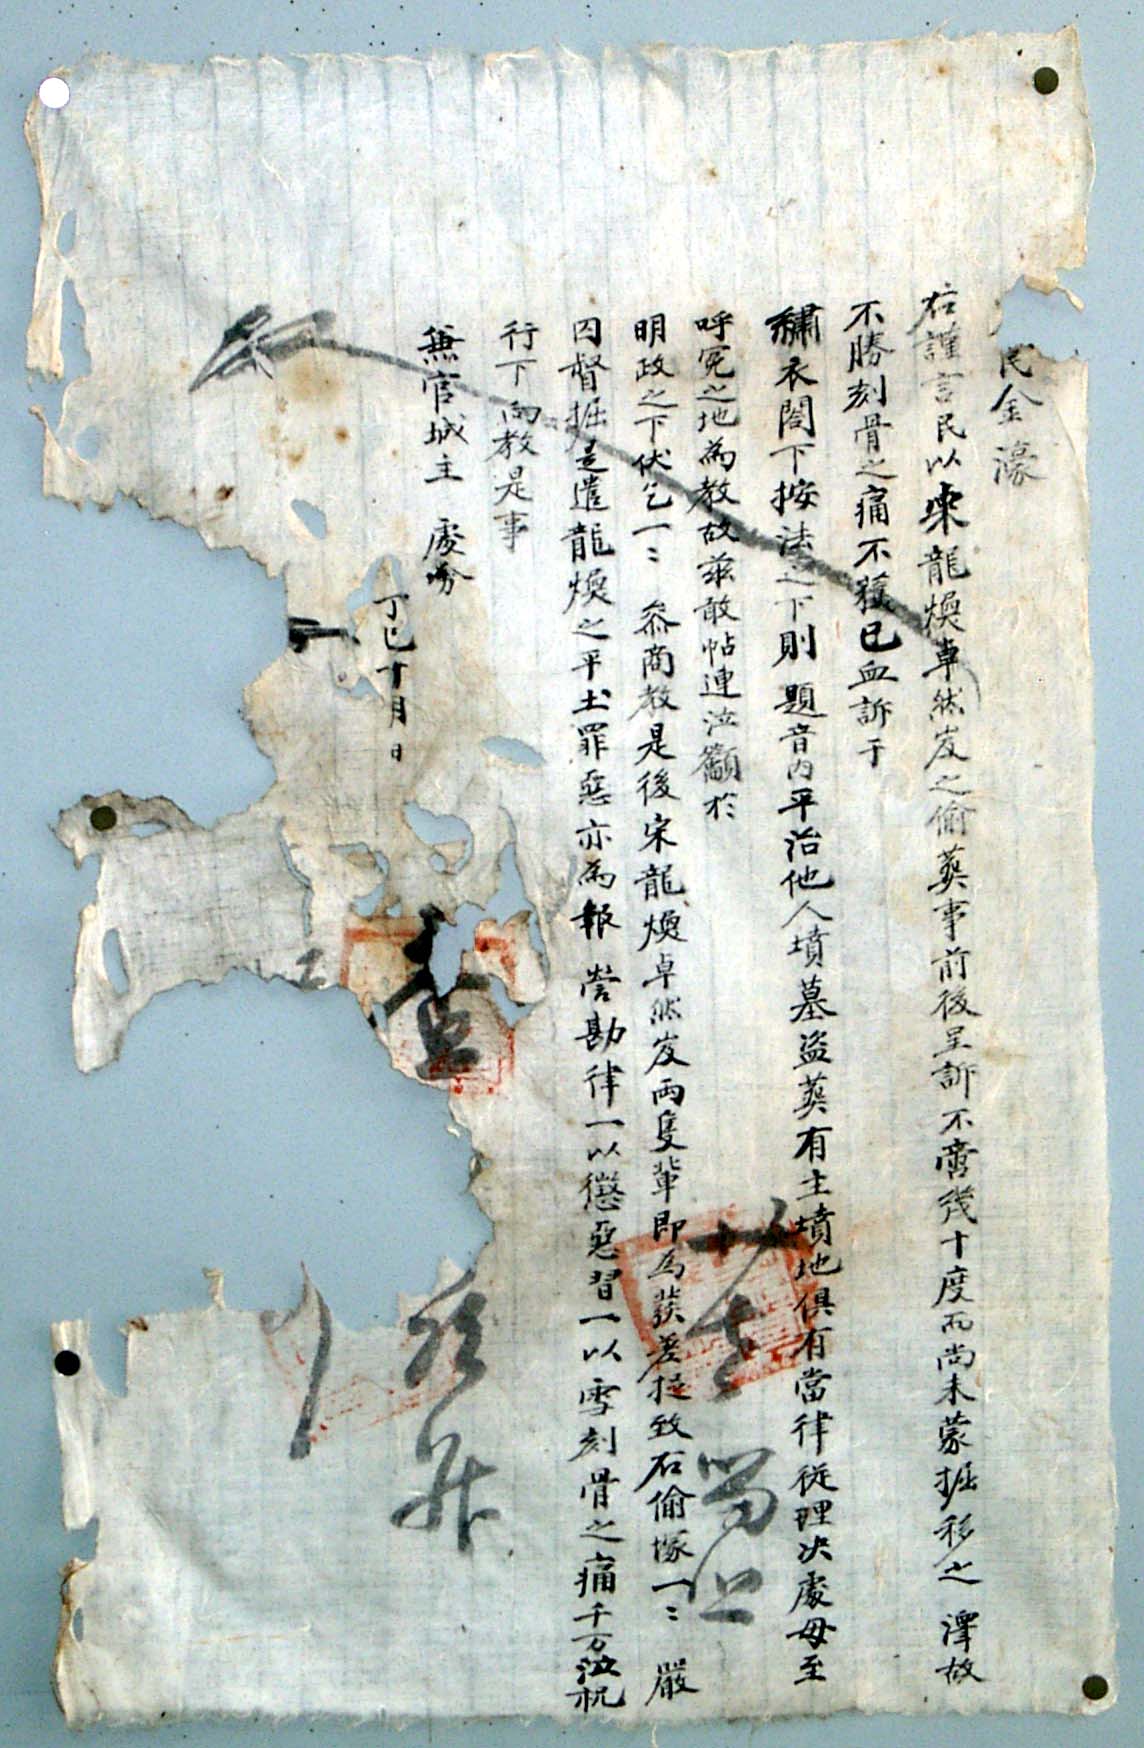 民金濠
右謹言民以宋龍煥卓然岌之偷葬事前後呈訴不啻幾十度而尚未蒙掘移之 澤故
不勝刻骨之痛不獲已血訴于
繡衣閤下按法之下則 題音內平治他人墳墓盜葬有主墳地俱有當律從理決處毋至
呼冤之地為教故玆敢帖連泣籲於
明政之下伏乞一〻 叅商教是後宋龍煥卓然岌兩隻輩即為發差捉致右偷塚一〻 嚴
囚督掘是遣龍煥之平土罪惡亦為報 營勘律一以懲惡習一以雪刻骨之痛千万泣祝
行下向教是事
兼官城主 處分
丁巳十月 日